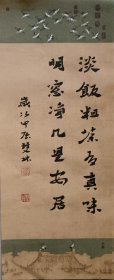 淡飯粗茶有真味
明窗淨几是安居
歲次甲辰